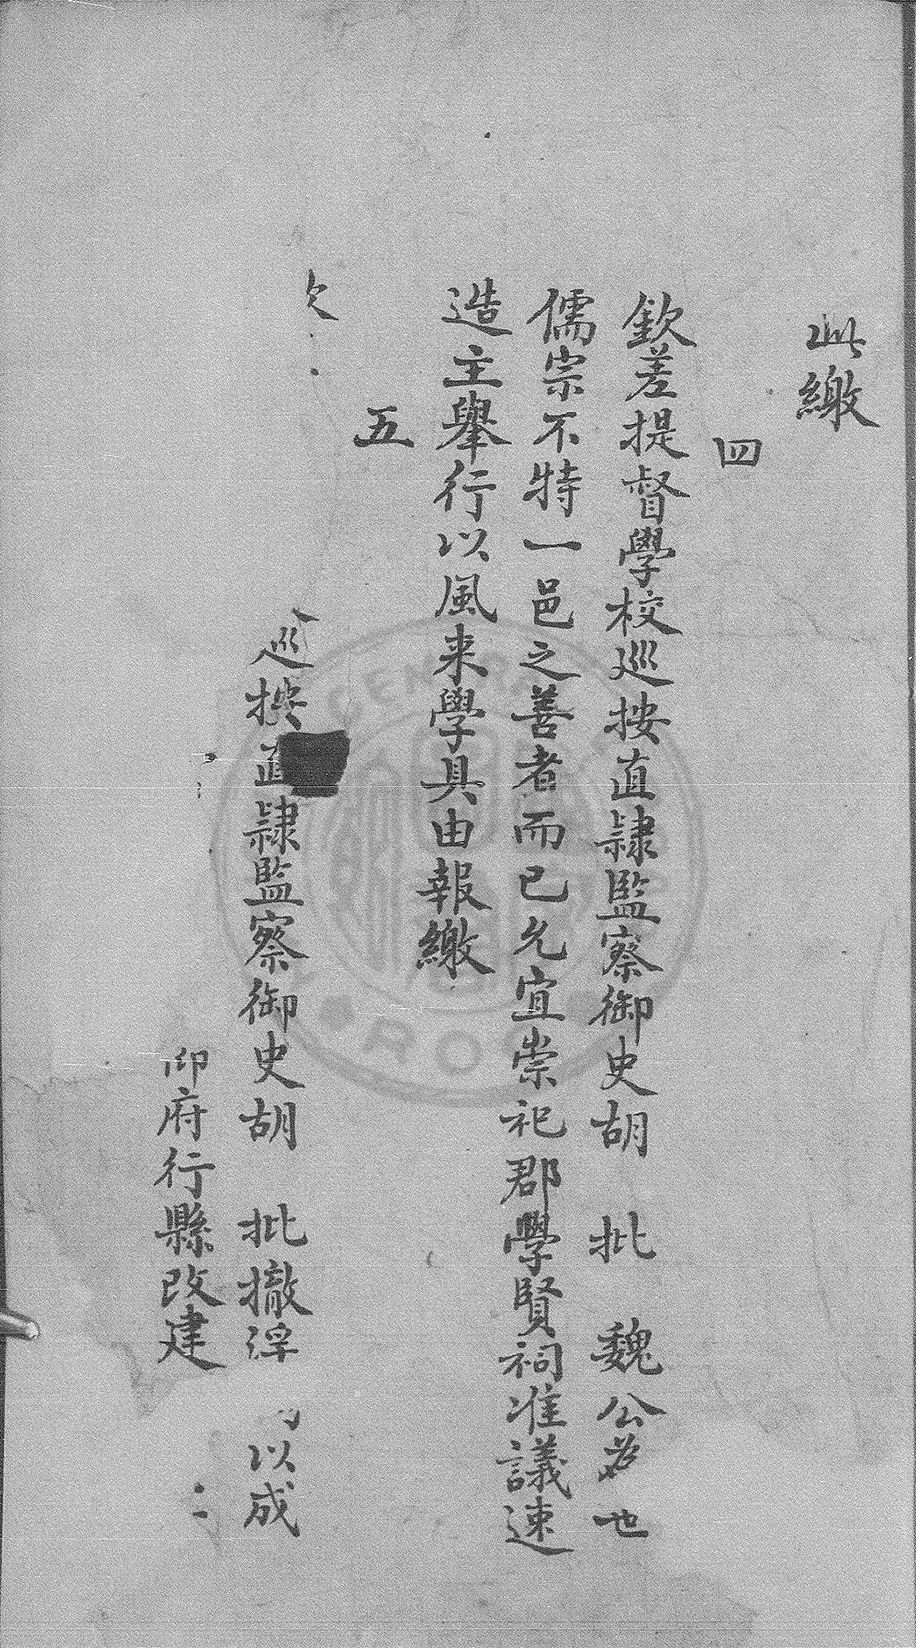 此繳
四
欽差提督學校巡按直隷監察御史胡 批 魏公為世
儒宗不特一邑之善者而已允宜崇祀郡學賢祠准議速
造主舉行以風来學具由報繳
五
巡按直隷監察御史胡 批撤淫 以成
仰府行縣改建
CENTRAL
ROS